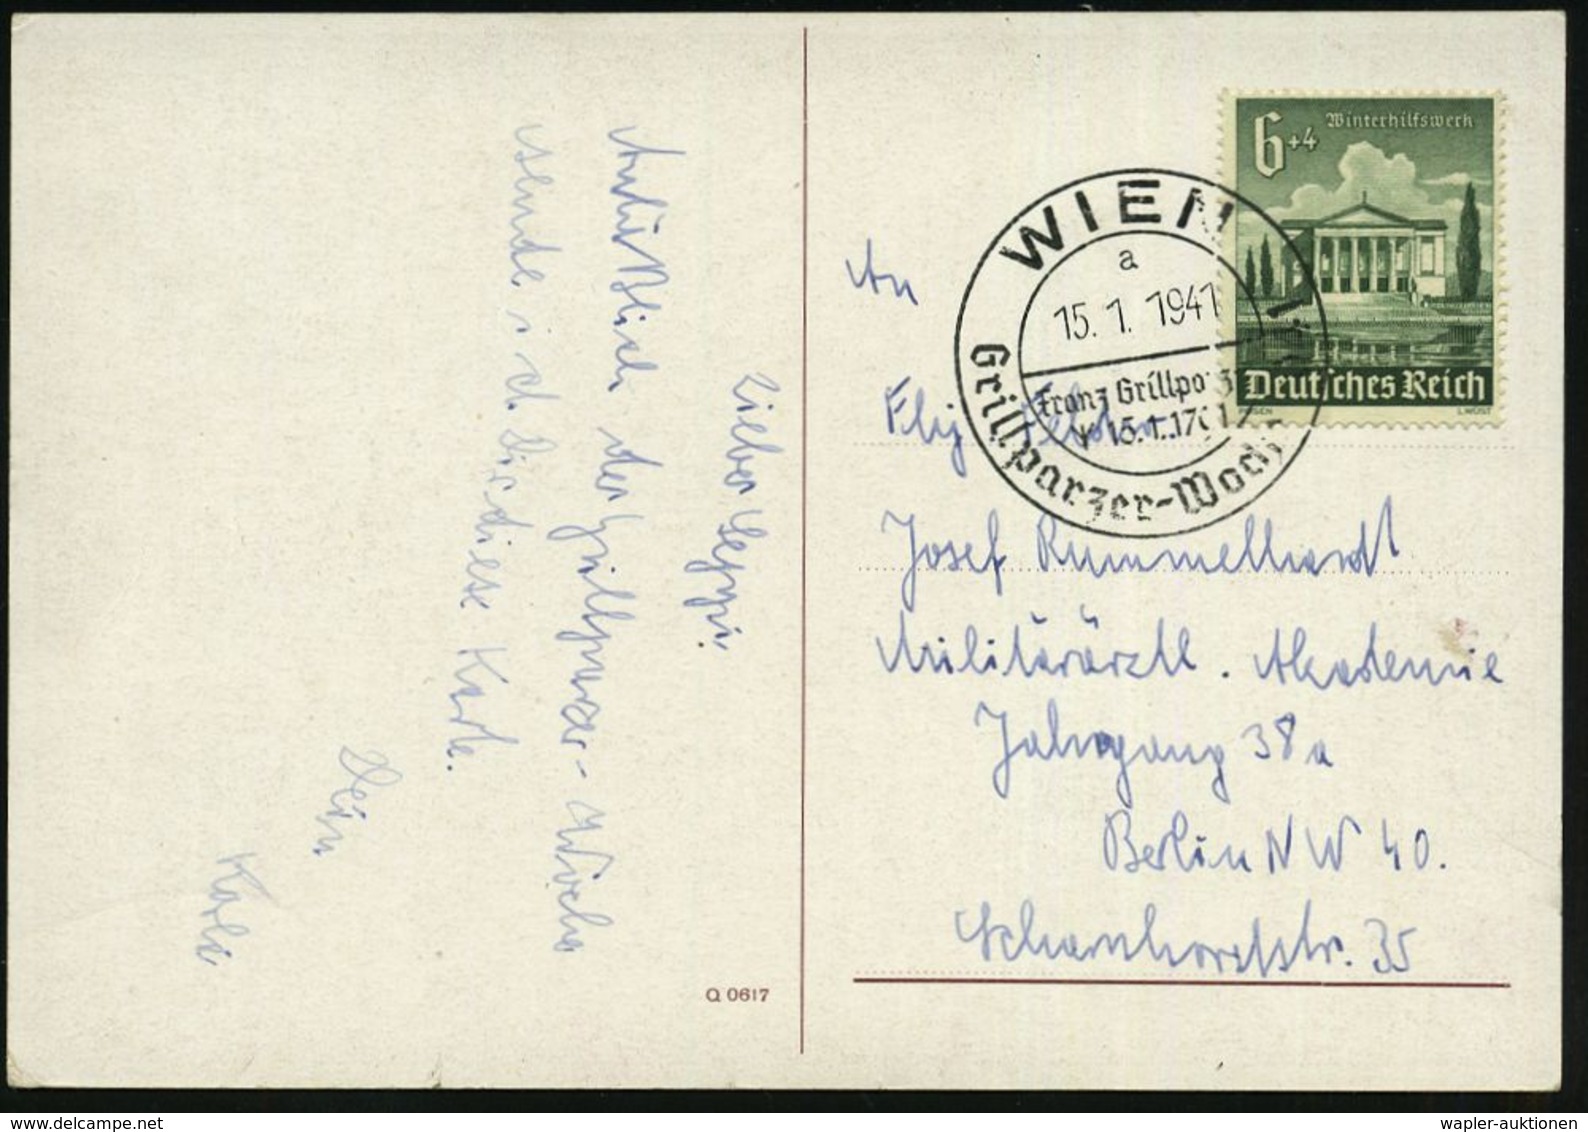 Lieber Seppi!
Anläßlich der Grillparzer-Woche
sende ich Dir diese Karte.
Dein
Karli
Q 0617
6+4
Winterhilfswerk
Deutsches Reich
POSEN L.WÜST
WIEN
a
15. 1. 1941
Franz Grillparzer
* 15.1.1791
Grillparzer-Woche
An
Josef Rummelhardt
Militärärztl. Akademie
Jahrgang 38a
Berlin NW 40.
Scharnhorststr. 35
wapler-auktionen